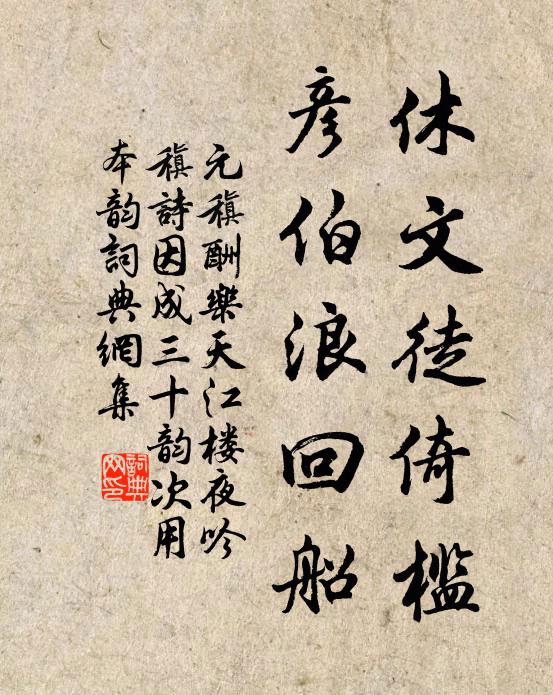 休文徒倚檻
彥伯浪回船
元稹酬樂天江楼夜吟
稹詩因成三十韵次用
本韵詞典網集
詞典
网印